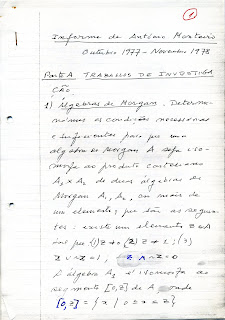 1
Informe de António Monteiro
Outubro 1977 - Novembro 1978
Parte A. TRABALHOS DE INVESTIGA
ÇÃO.
1) Algebras de Morgan. Determi-
námos as condições necessárias
e suficientes para que uma
algebra de Morgan A seja iso-
morfa ao produto cartesiano
A₁ x A₂ de duas álgebras de
Morgan A₁, A₂, com mais de
um elemento, que são as seguin-
tes: existe um elemento z ∈ A
tal que (1) z ≠ 0 (2) z ≠ 1; (3)
z ∨ ~z = 1, z ∧ ~z = 0
A álgebra A₂ é isomorfa ao
segmento [0,z] de A, onde
[0,z] = {x | 0 ≤ x ≤ z}